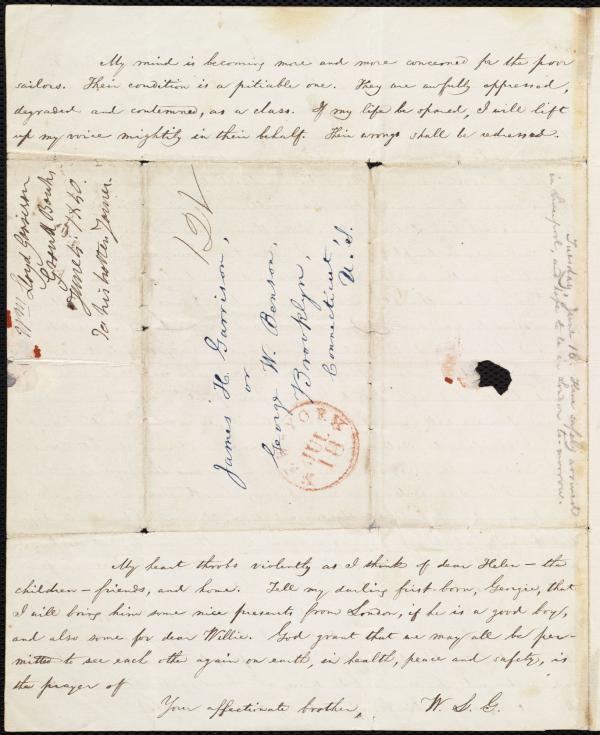 My mind is becoming more and more concerned for the poor
sailors. Their condition is a pitiable one. They are awfully oppressed,
degraded and contemned, as a class. If my life be spared, I will lift
up my voice mightily in their behalf. Their wrongs shall be redressed.
Wm Lloyd Garrison
Grand Banks
June 5. 1840.
To his brother James.
12½
James H. Garrison,
or
George W. Benson,
Brooklyn,
Connecticut,
U. S.
NEW-YORK
JUL
18
Tuesday, June 16. Have safely arrived
in Liverpool, and hope to be in London to-morrow.
My heart throbs violently as I think of dear Helen — the
children — friends, and home. Tell my darling first-born, Georgie, that
I will bring him some nice presents from London, if he is a good boy,
and also some for dear Willie. God grant that we may all be per-
mitted to see each other again on earth, in health, peace and safety, is
the prayer of
Your affectionate brother,
W. L. G.